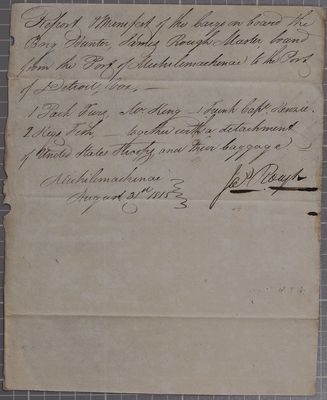 Report & Manifest of the Cargo on board the
Brig Hunter, James Rough Master bound
from the Port of Michilimackinac to the Port
of Detroit, Viz, —
1 Pack Furs, Mr. King — 1 Trunk Capt.
2 Kegs Fish, — together with a detachment
of United States Troops and their baggage
Michilimackinac
August 31st 1815
Jas. Rough